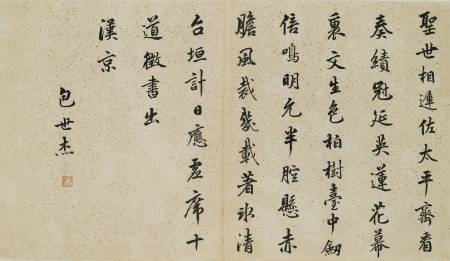 聖世相遲佐太平齊看
奏績冠延英蓮花幕
裏文生色柏樹臺中劔
倍鳴明允半腔懸赤
膽風裁幾載著氷清
台垣計日應虛席十
道徵書出
漢京
包世杰